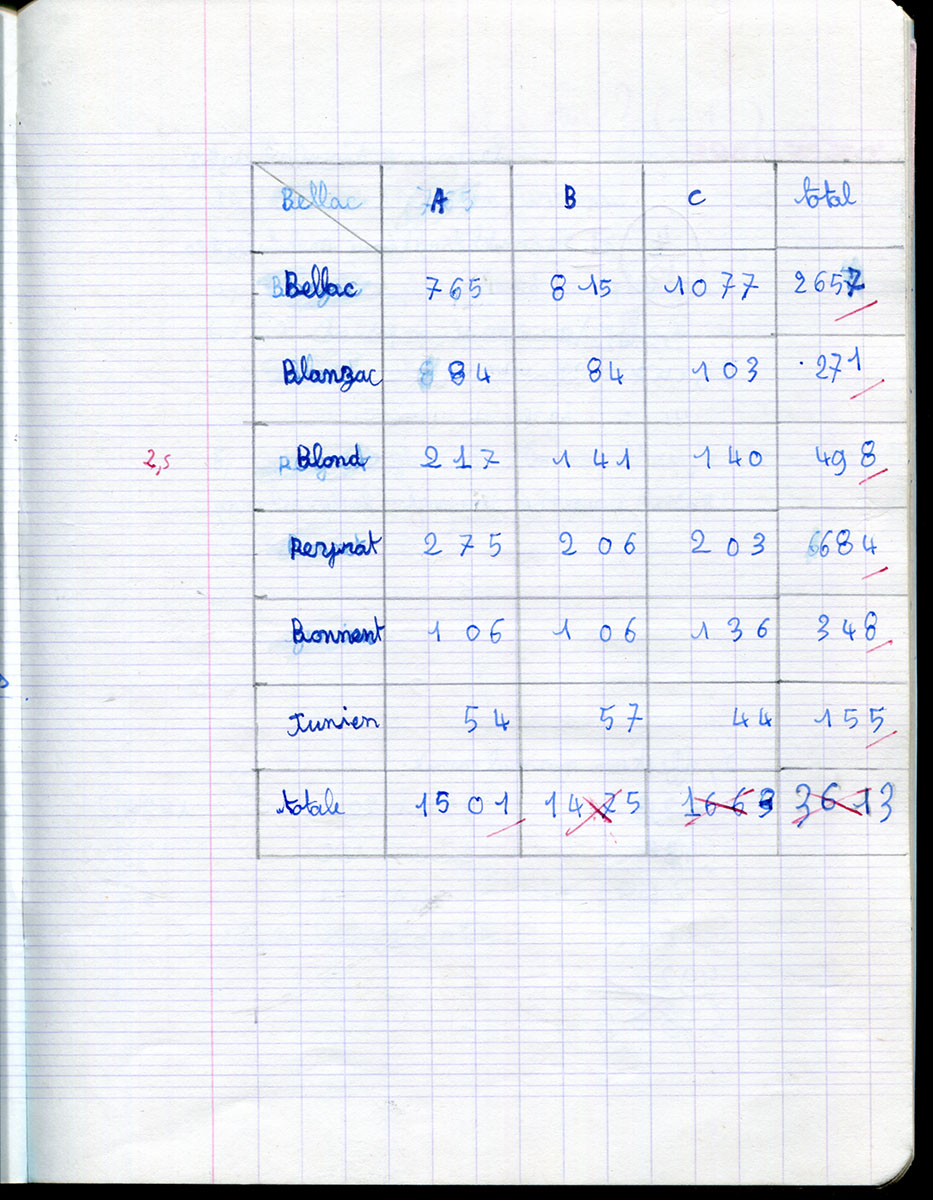 Bellac A B C total
Bellac 765 815 1077 2657
Blanzac 84 84 103 271
2,5 Blond 217 141 140 498
Peyrat 275 206 203 684
Bonnent 106 106 136 348
Junien 54 57 44 155
totale 1501 1475 1663 3613